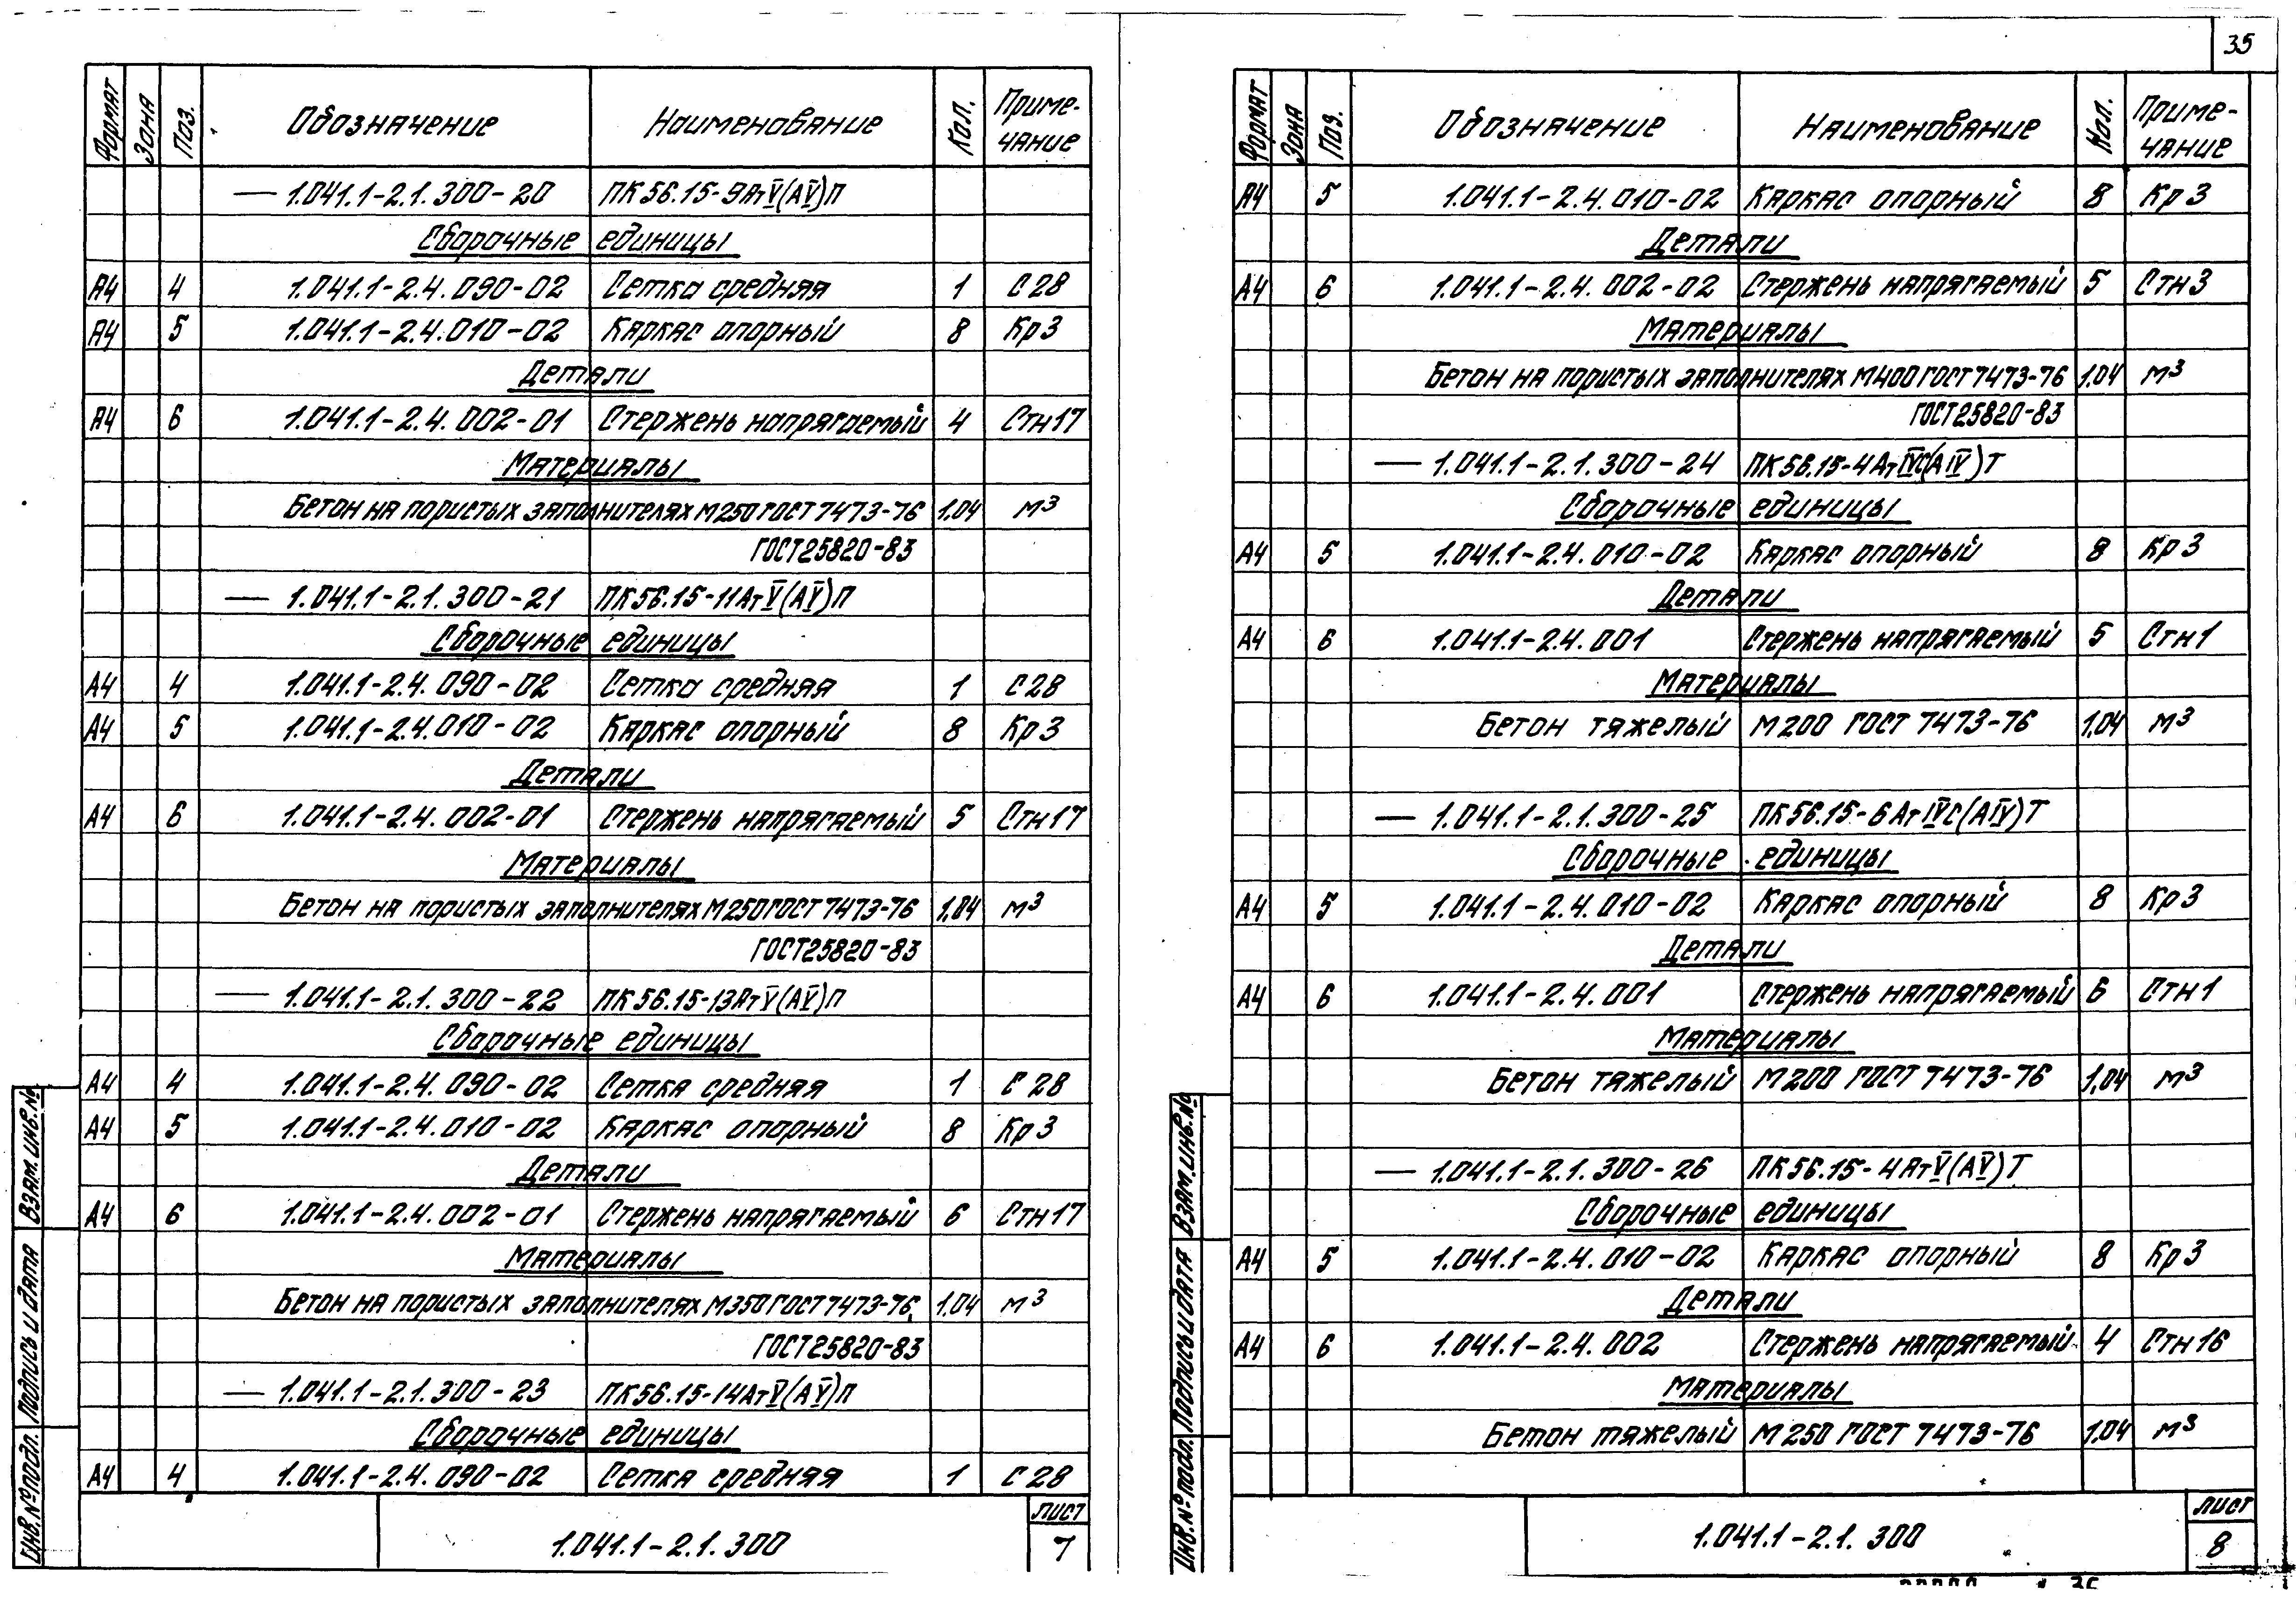 35
Формат Зона Поз. Обозначение Наименование Кол. Приме-
чание
— 1.041.1-2.1.300-20 ПК56.15-9АтV(АV)П
Сборочные единицы
А4 4 1.041.1-2.4.090-02 Сетка средняя 1 С28
А4 5 1.041.1-2.4.010-02 Каркас опорный 8 Кр3
Детали
А4 6 1.041.1-2.4.002-01 Стержень напрягаемый 4 Стн17
Материалы
Бетон на пористых заполнителях М250 ГОСТ 7473-76 1.04 м³
ГОСТ25820-83
— 1.041.1-2.1.300-21 ПК56.15-11АтV(АV)П
Сборочные единицы
А4 4 1.041.1-2.4.090-02 Сетка средняя 1 С28
А4 5 1.041.1-2.4.010-02 Каркас опорный 8 Кр3
Детали
А4 6 1.041.1-2.4.002-01 Стержень напрягаемый 5 Стн17
Материалы
Бетон на пористых заполнителях М250 ГОСТ 7473-76 1.04 м³
ГОСТ25820-83
— 1.041.1-2.1.300-22 ПК56.15-13АтV(АV)П
Сборочные единицы
А4 4 1.041.1-2.4.090-02 Сетка средняя 1 С28
А4 5 1.041.1-2.4.010-02 Каркас опорный 8 Кр3
Детали
А4 6 1.041.1-2.4.002-01 Стержень напрягаемый 6 Стн17
Материалы
Бетон на пористых заполнителях М350 ГОСТ 7473-76, 1.04 м³
ГОСТ25820-83
— 1.041.1-2.1.300-23 ПК56.15-14АтV(АV)П
Сборочные единицы
А4 4 1.041.1-2.4.090-02 Сетка средняя 1 С28
Инв.№подл. Подпись и дата Взам.инв.№
1.041.1-2.1.300
лист
7
Формат Зона Поз. Обозначение Наименование Кол. Приме-
чание
А4 5 1.041.1-2.4.010-02 Каркас опорный 8 Кр3
Детали
А4 6 1.041.1-2.4.002-02 Стержень напрягаемый 5 Стн3
Материалы
Бетон на пористых заполнителях М400 ГОСТ 7473-76 1.04 м³
ГОСТ25820-83
— 1.041.1-2.1.300-24 ПК56.15-4АтIVС(АIV)Т
Сборочные единицы
А4 5 1.041.1-2.4.010-02 Каркас опорный 8 Кр3
Детали
А4 6 1.041.1-2.4.001 Стержень напрягаемый 5 Стн1
Материалы
Бетон тяжелый М200 ГОСТ 7473-76 1,04 м³
— 1.041.1-2.1.300-25 ПК56.15-6АтIVС(АIV)Т
Сборочные единицы
А4 5 1.041.1-2.4.010-02 Каркас опорный 8 Кр3
Детали
А4 6 1.041.1-2.4.001 Стержень напрягаемый 6 Стн1
Материалы
Бетон тяжелый М200 ГОСТ 7473-76 1,04 м³
— 1.041.1-2.1.300-26 ПК56.15-4АтV(АV)Т
Сборочные единицы
А4 5 1.041.1-2.4.010-02 Каркас опорный 8 Кр3
Детали
А4 6 1.041.1-2.4.002 Стержень напрягаемый 4 Стн16
Материалы
Бетон тяжелый М250 ГОСТ 7473-76 1.04 м³
Инв.№подл. Подпись и дата Взам.инв.№
1.041.1-2.1.300
лист
8